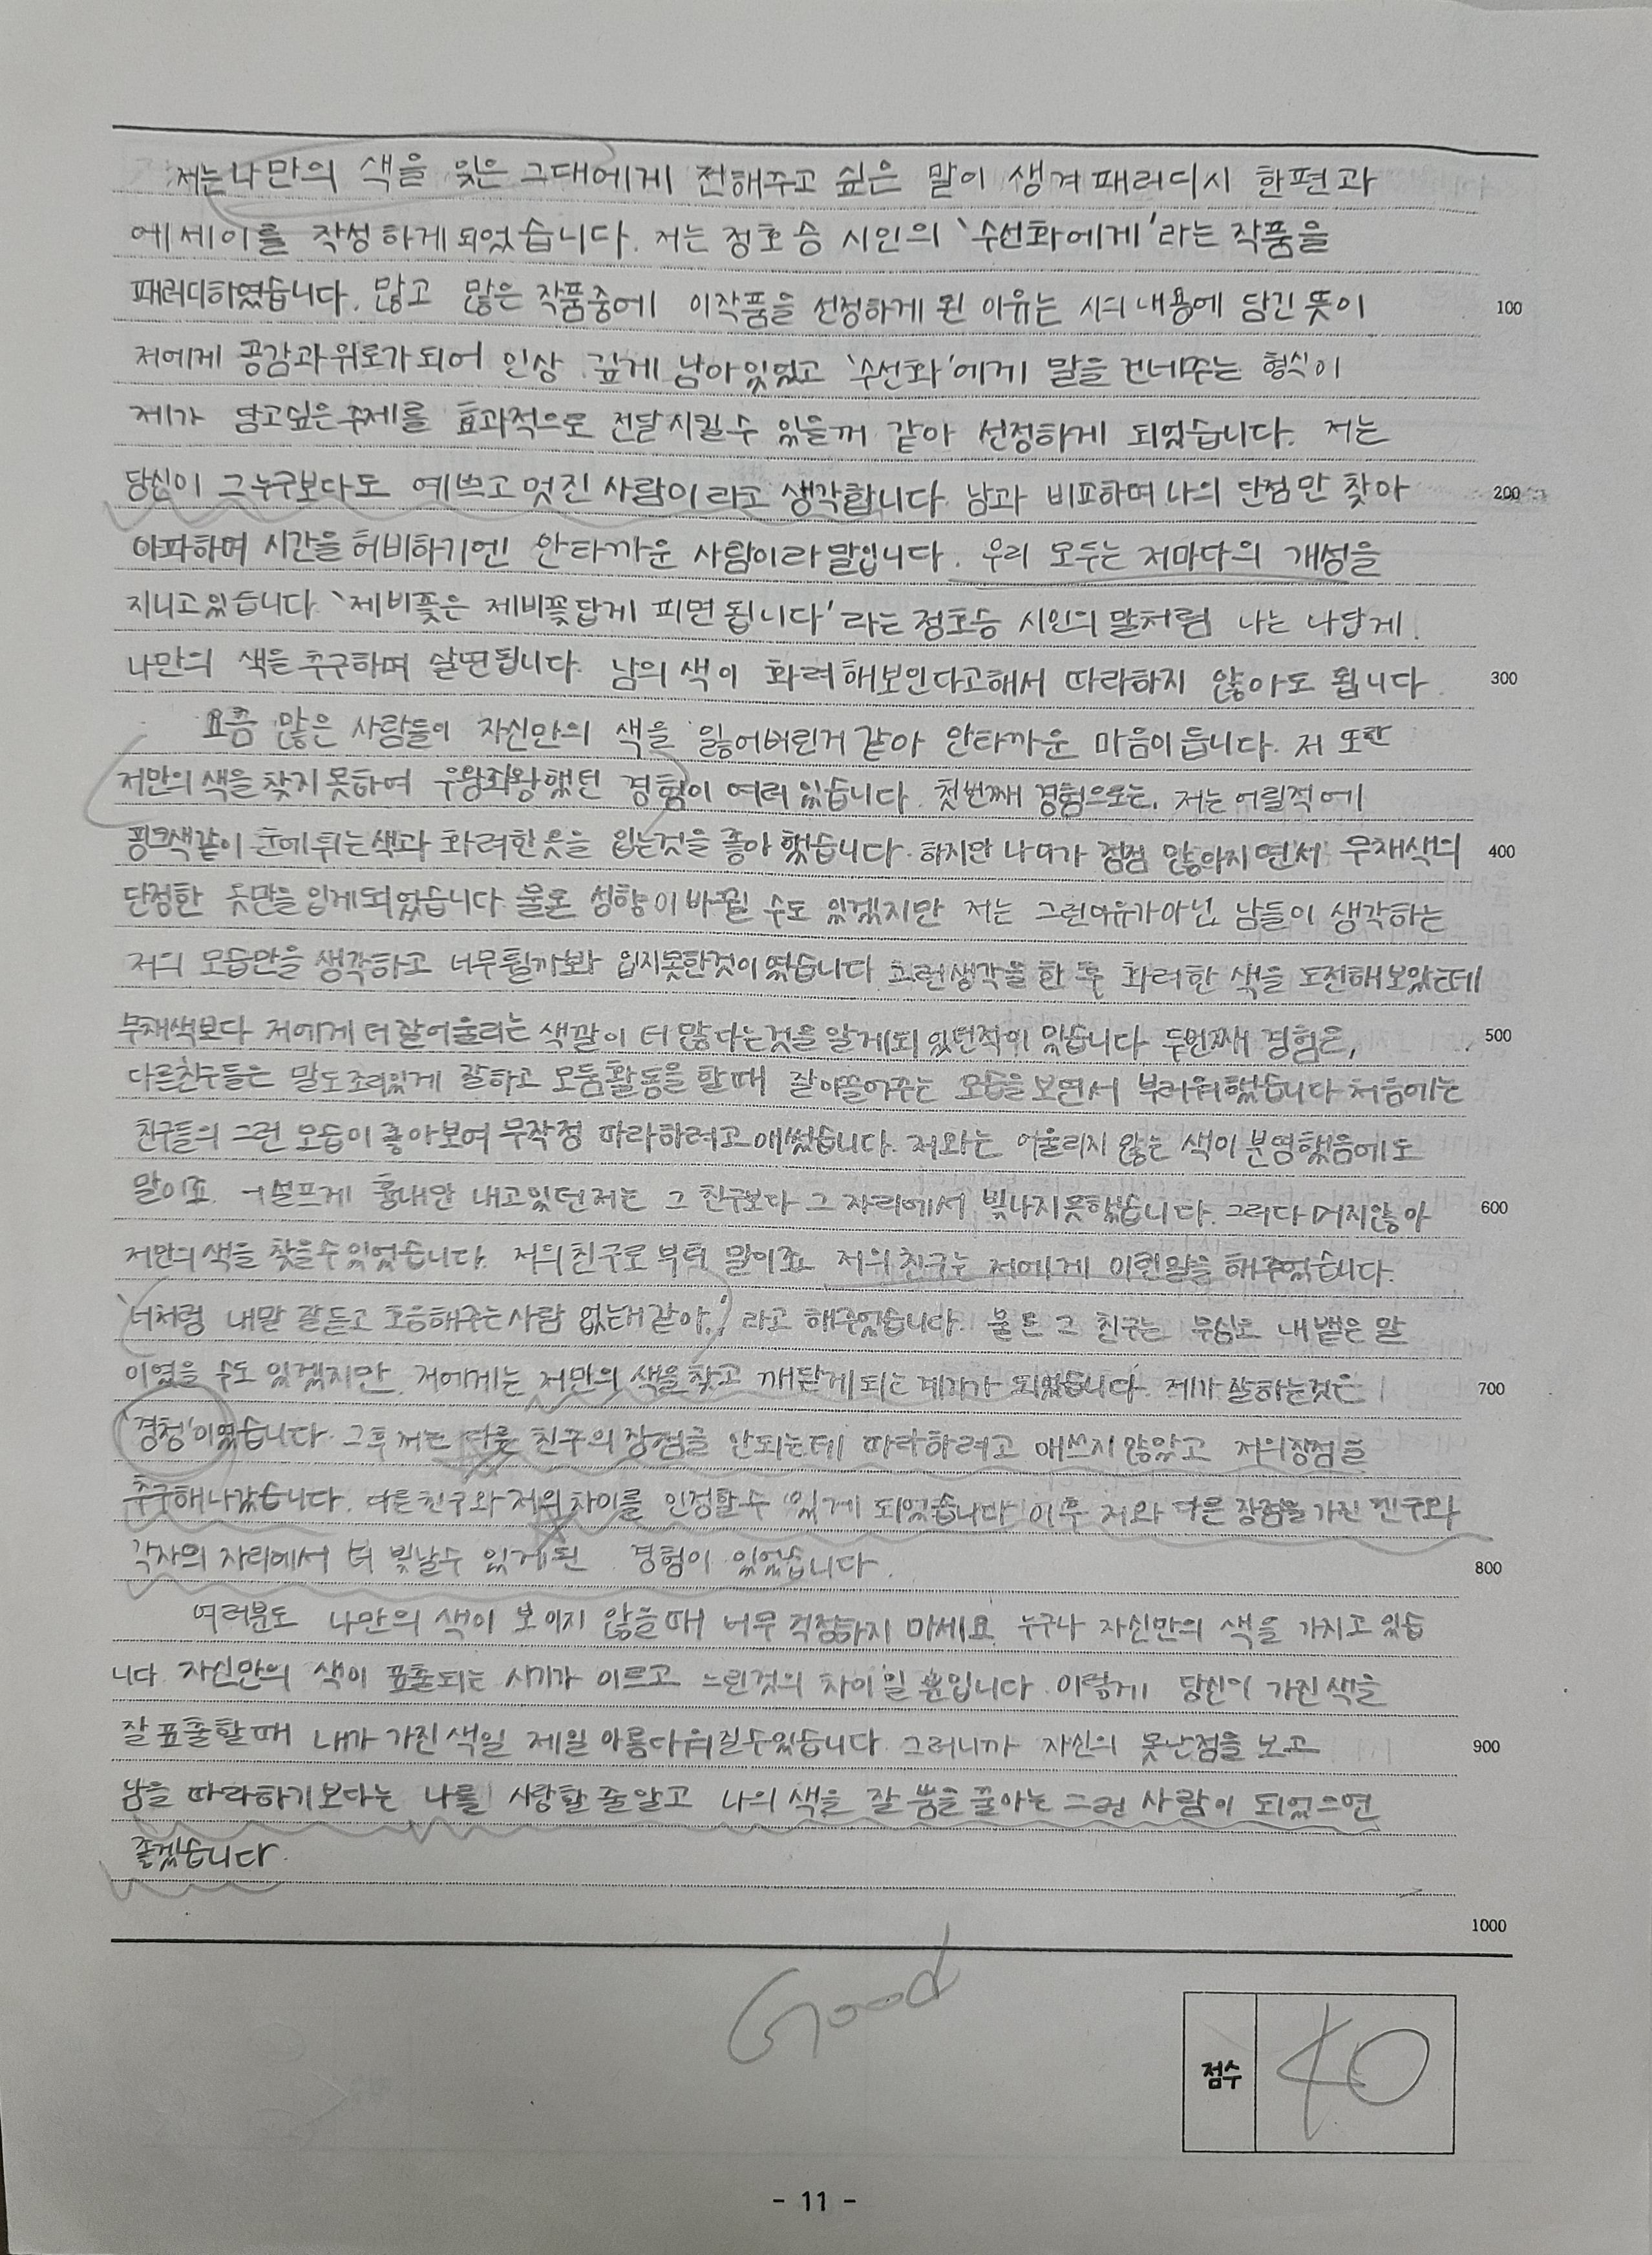 저는 나만의 색을 잊은 그대에게 전해주고 싶은 말이 생겨 패러디시 한편과
에세이를 작성하게 되었습니다. 저는 정호승 시인의 '수선화에게'라는 작품을
패러디하였습니다. 많고 많은 작품중에 이작품을 선정하게 된 이유는 시의 내용에 담긴 뜻이
100
저에게 공감과 위로가 되어 인상 깊게 남아있었고 '수선화'에게 말을 건네주는 형식이
제가 담고싶은 주제를 효과적으로 전달시킬수 있을꺼 같아 선정하게 되었습니다. 저는
당신이 그 누구보다도 예쁘고 멋진 사람이라고 생각합니다. 남과 비교하며 나의 단점만 찾아
200
아파하며 시간을 허비하기엔 안타까운 사람이라 말입니다. 우리 모두는 저마다의 개성을
지니고 있습니다. '제비꽃은 제비꽃답게 피면 됩니다'라는 정호승 시인의 말처럼 나는 나답게
나만의 색을 추구하며 살면됩니다. 남의 색이 화려해보인다고해서 따라하지 않아도 됩니다.
300
요즘 많은 사람들이 자신만의 색을 잃어버린거 같아 안타까운 마음이 듭니다. 저 또한
저만의 색을 찾지 못하여 우왕좌왕했던 경험이 여러 있습니다. 첫번째 경험으로는, 저는 어릴적에
핑크색같이 눈에 튀는 색과 화려한 옷을 입는것을 좋아했습니다. 하지만 나이가 점점 많아지면서 무채색의
400
단정한 옷만을 입게되었습니다. 물론 성향이 바뀔 수도 있겠지만 저는 그런이유가아닌 남들이 생각하는
저의 모습만을 생각하고 너무튈까봐 입지못한것이였습니다. 그런생각을 한 후 화려한 색을 도전해보았는데
무채색보다 저에게 더 잘어울리는 색깔이 더 많다는것을 알게되었던적이 있습니다. 두번째 경험은,
500
다른친구들은 말도조리있게 잘하고 모둠활동을 할때 잘이끌어주는 모습을보면서 부러워했습니다. 처음에는
친구들의 그런 모습이 좋아보여 무작정 따라하려고 애썼습니다. 저와는 어울리지 않는 색이 분명했음에도
말이죠. 어설프게 흉내만 내고있던저는 그 친구보다 그 자리에서 빛나지못했습니다. 그러다 머지않아
600
저만의 색을 찾을수있었습니다. 저의친구로부터 말이죠. 저의 친구는 저에게 이런말을 해주었습니다.
'너처럼 내말 잘듣고 호응해주는사람 없는거같아.' 라고 해주었습니다. 물론 그 친구는 무심코 내뱉은 말
이였을 수도 있겠지만, 저에게는 저만의 색을찾고 깨닫게되는 계기가 되었습니다. 제가 잘하는것은
700
'경청'이였습니다. 그후 저는 다른 친구의 장점을 안되는데 따라하려고 애쓰지 않았고 저의장점을
추구해나갔습니다. 다른친구와 저의 차이를 인정할수 있게 되었습니다. 이후 저와 다른 장점을 가진 친구와
각자의 자리에서 더 빛날수 있게된 경험이 있었습니다.
800
여러분도 나만의 색이 보이지 않을때 너무 걱정하지 마세요. 누구나 자신만의 색을 가지고 있습
니다. 자신만의 색이 표출되는 시기가 이르고 느린것의 차이일 뿐입니다. 이렇게 당신이 가진색을
잘 표출할때 내가 가진색일 제일 아름다워질수있습니다. 그러니까 자신의 못난점을 보고
900
남을 따라하기보다는 나를 사랑할 줄알고 나의 색을 잘 뿜을 줄아는 그런 사람이 되었으면
좋겠습니다.
1000
Good
점수 40
- 11 -